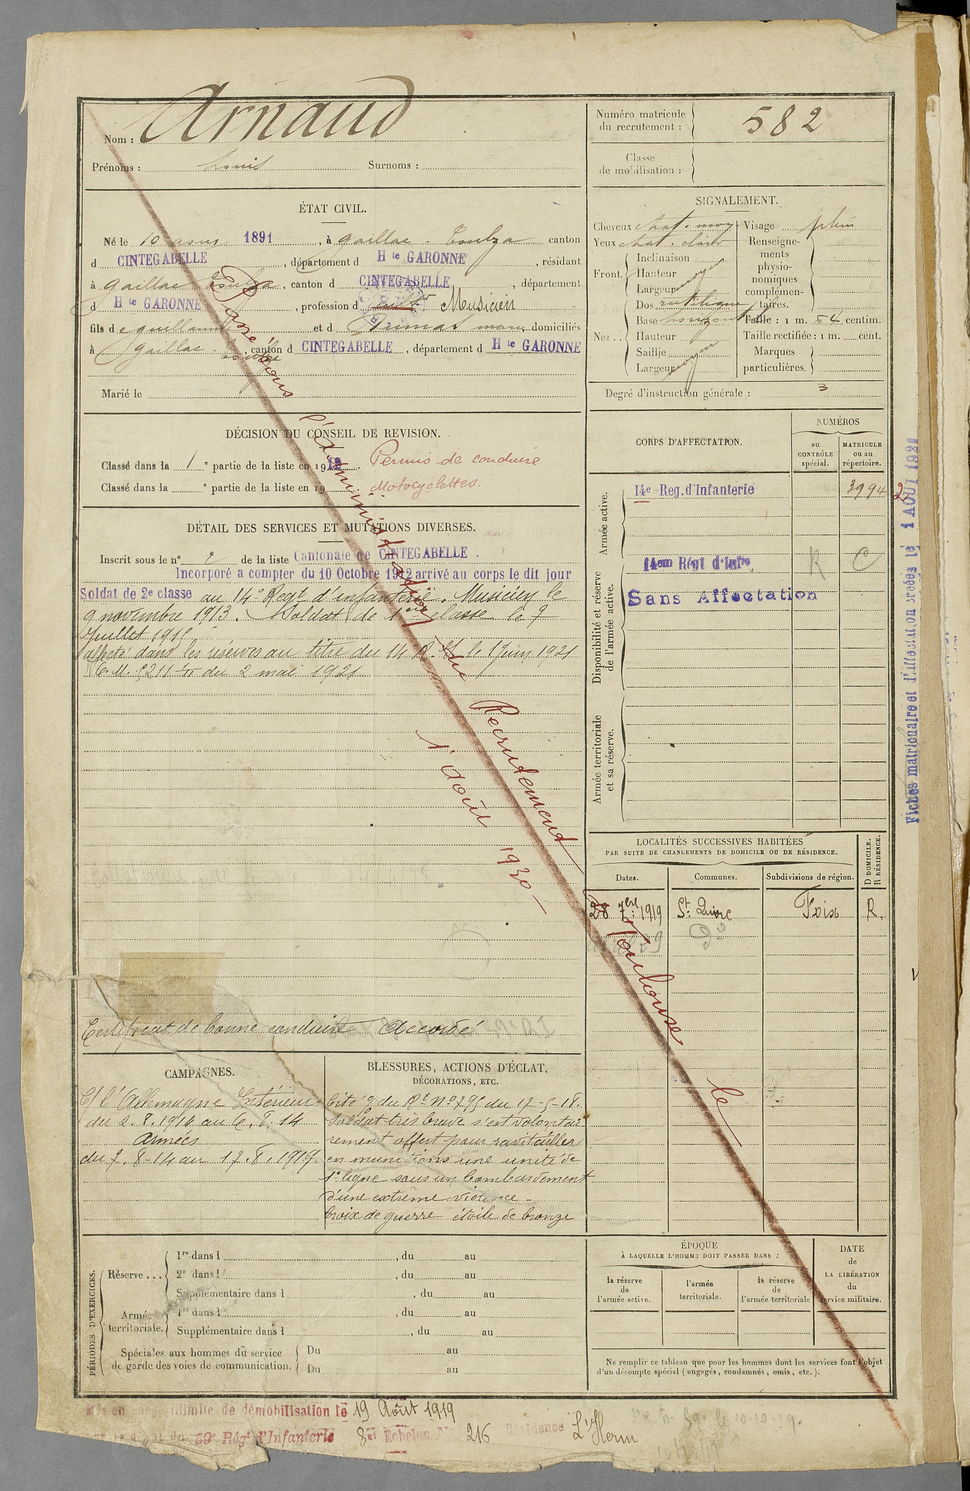 Nom : Arnaud
Prénoms : Louis Surnoms :
Numéro matricule du recrutement : 582
Classe de mobilisation :
ÉTAT CIVIL.
Né le 10 1891, à Gaillac-Toulza canton
d CINTEGABELLE, département d Hte GARONNE, résidant
à Gaillac Toulza, canton d CINTEGABELLE, département
d Hte GARONNE, profession d Musicien
fils de Guillaume et d domiciliés
à Gaillac Toulza, canton d CINTEGABELLE, département d Hte GARONNE
Marié le
SIGNALEMENT.
Cheveux chat. moy. Visage plein
Yeux chat. clair Renseigne-
ments
physio-
nomiques
complémen-
taires.
Front. Inclinaison
Hauteur moyen
Largeur
Nez.. Dos rectiligne
Base horizontal Taille : 1 m. 54 centim.
Hauteur Taille rectifiée : 1 m. cent.
Saillie moyen Marques
Largeur particulières.
Degré d'instruction générale : 3
DÉCISION DU CONSEIL DE REVISION.
Classé dans la 1e partie de la liste en 1912. Permis de conduire
Classé dans la e partie de la liste en 19 . Motocyclettes.
DÉTAIL DES SERVICES ET MUTATIONS DIVERSES.
Inscrit sous le n° 2 de la liste Cantonale de CINTEGABELLE.
Incorporé a compter du 10 Octobre 1912 arrivé au corps le dit jour
Soldat de 2e classe au 14e Regt d'infanterie. Musicien le
9 novembre 1913. Soldat de 1ere classe le 9
Juillet 1915
affecté dans les réserves au titre du 14 R.I. le 1 Juin 1921
du 2 mai 1921
Passé sous l'administration du Recrutement de Toulouse le
1er Août 1930
Certificat de bonne conduite Accordé
CORPS D'AFFECTATION.
NUMÉROS
au CONTRÔLE spécial.
MATRICULE ou au répertoire.
Armée active.
14e Reg. d'Infanterie 3994
Disponibilité et réserve de l'armée active.
14em Régt d'Infie R C
Sans Affectation
Armée territoriale et sa réserve.
Fiches matriculaire et d'affectation créées le 1 AOUT 1931
LOCALITÉS SUCCESSIVES HABITÉES
PAR SUITE DE CHANGEMENTS DE DOMICILE OU DE RÉSIDENCE.
Dates. Communes. Subdivisions de région. D DOMICILE. R RÉSIDENCE.
28 7bre 1919 Foix R.
do
CAMPAGNES.
C/ l'Allemagne Intérieur
du 2.8.1914 au 6.8.14
Armées
du 7-8-14 au 17.8.1919.
BLESSURES, ACTIONS D'ÉCLAT,
DÉCORATIONS, ETC.
Cité O. du Rt N° 295 du 17-5-18.
Soldat très brave s'est volontai-
rement offert pour ravitailler
en munitions une unité de
1e ligne sous un bombardement
d'une extrême violence.
Croix de guerre étoile de bronze
PÉRIODES D'EXERCICES.
Réserve... 1re dans l , du au
2e dans l , du au
Supplémentaire dans l , du au
Armée territoriale. 1re dans l , du au
Supplémentaire dans l , du au
Spéciales aux hommes du service Du au
de garde des voies de communication. Du au
ÉPOQUE
À LAQUELLE L'HOMME DOIT PASSER DANS :
la réserve de l'armée active.
l'armée territoriale.
la réserve de l'armée territoriale
DATE de LA LIBÉRATION du service militaire.
Ne remplir ce tableau que pour les hommes dont les services font l'objet
d'un décompte spécial (engagés, condamnés, omis, etc.).
Mis en congé illimité de démobilisation le 19 Août 1919
59e Régt d'Infanterie 8e Echelon N° 216 Résidence L'Herm